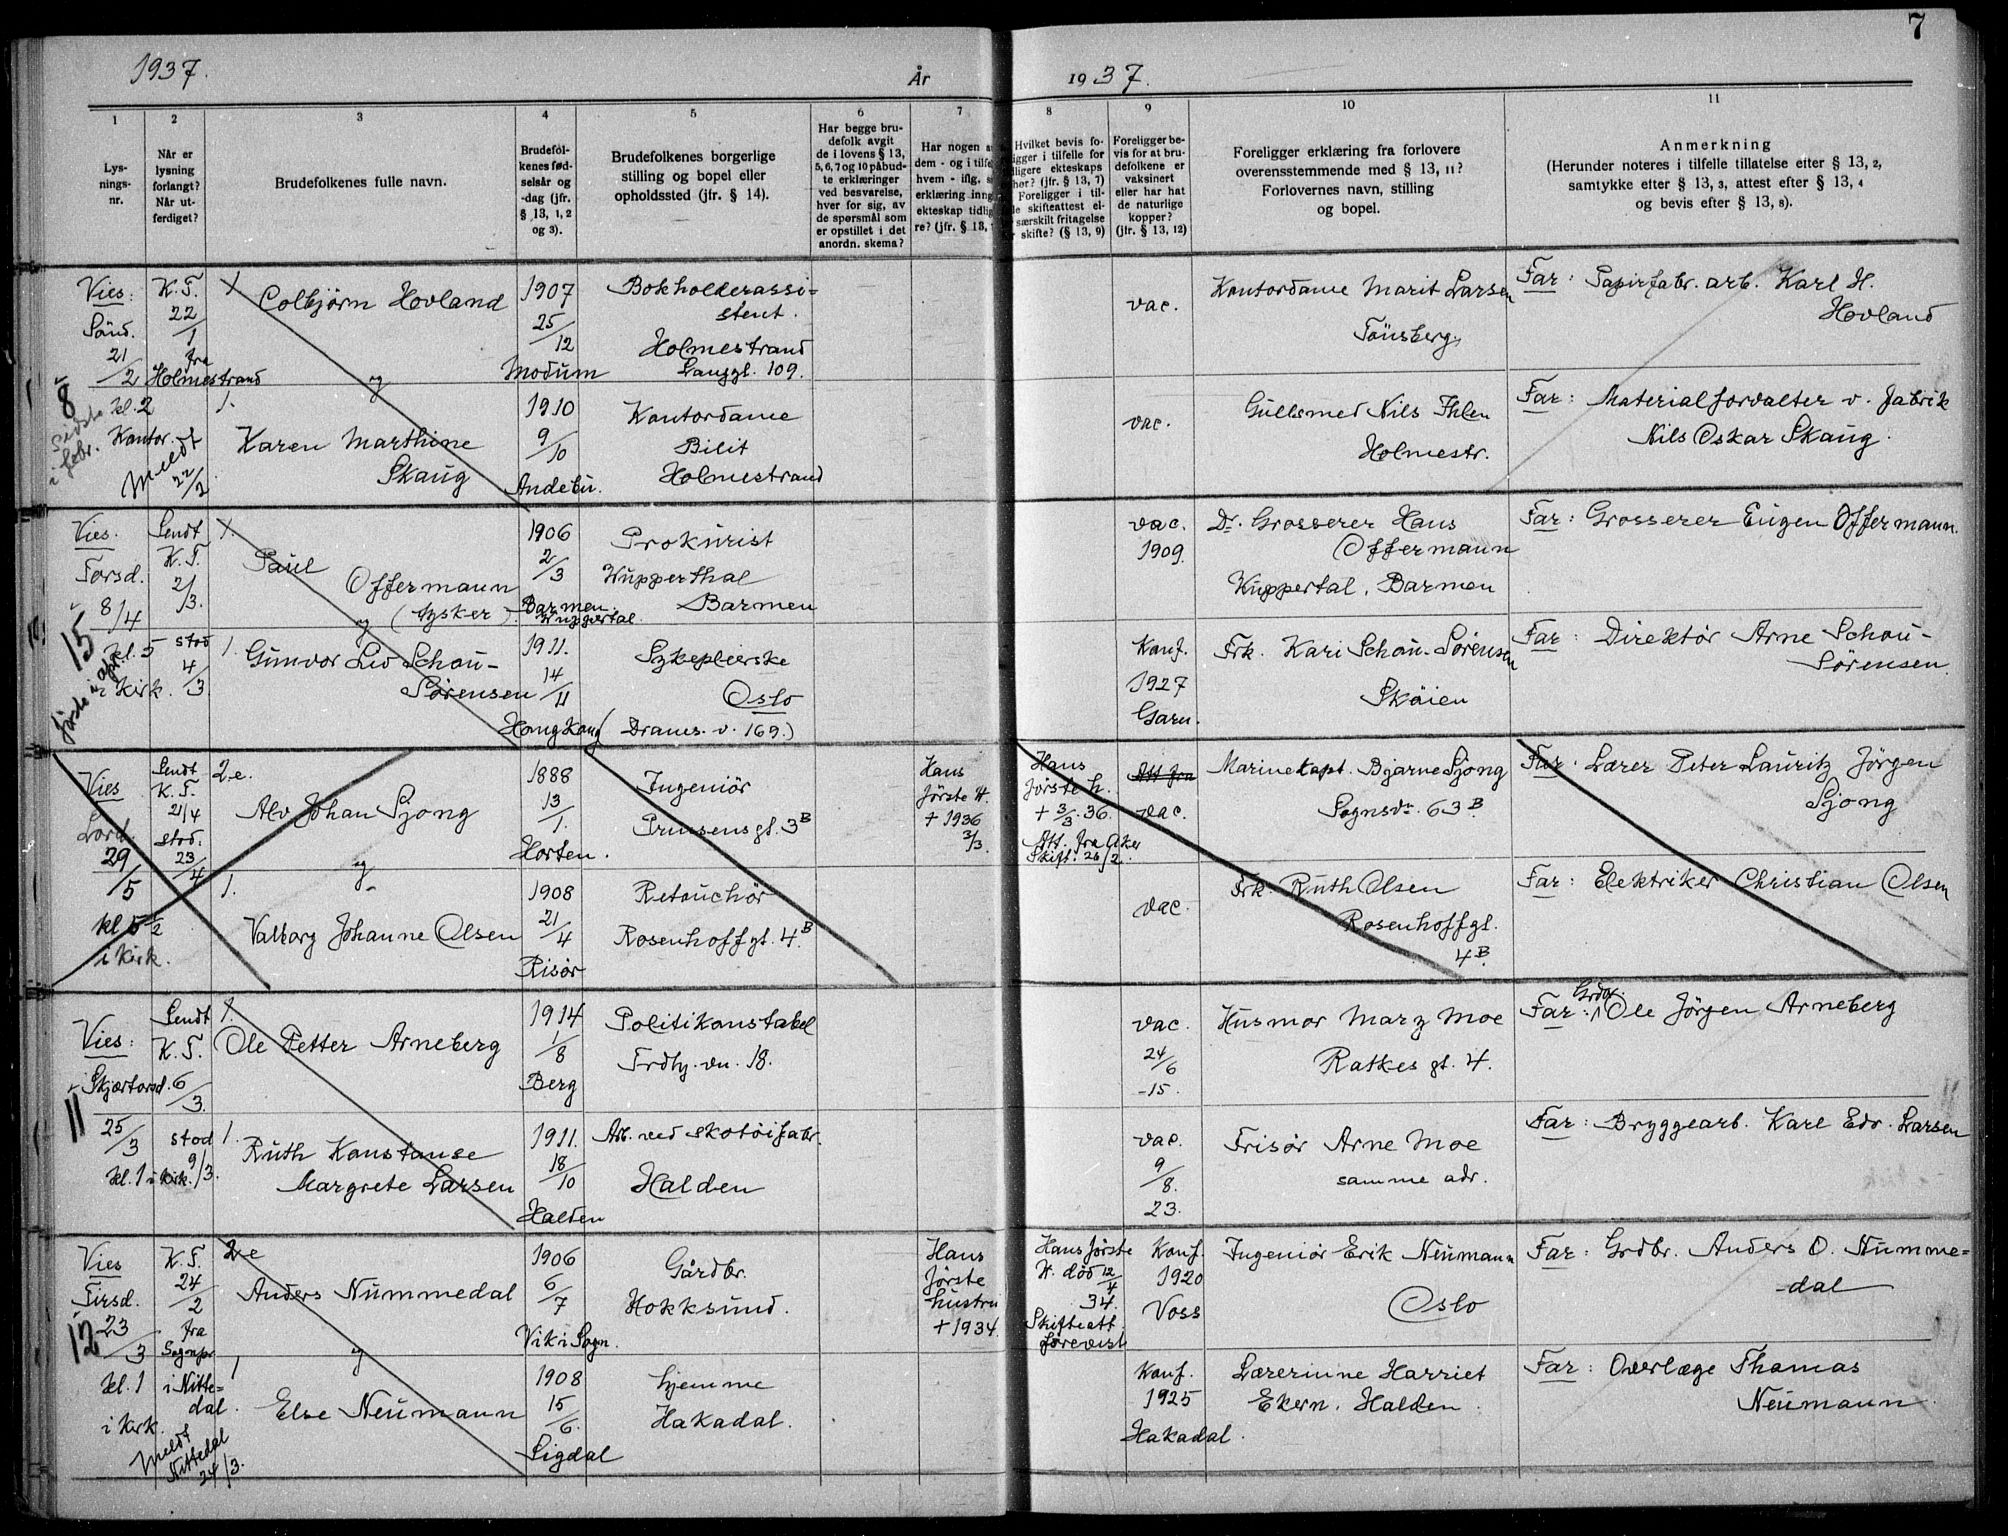 7
1937.
År
1937.
1
2
3
4
5
6
7
8
9
10
11
Lys-
nings-
nr.
Når er
lysning
forlangt?
Når ut-
ferdiget?
Brudefolkenes fulle navn.
Brudefol-
kenes fød-
selsår og
-dag (jfr.
§ 13, 1, 2
og 3).
Brudefolkenes borgerlige
stilling og bopel eller
opholdssted (jfr. § 14).
Har begge bru-
defolk avgit
de i lovens § 13,
5, 6, 7 og 10 påbud-
te erklæringer
ved besvarelse,
hver for sig, av
de spørsmål som
er opstillet i det
anordn. skema?
Har nogen a
dem - og i tilfe
hvem - iflg. s
erklæring inng
ekteskap tidlig
re? (jfr. § 13,
Hvilket bevis fo-
igger i tilfelle for
dligere ekteskaps
hør? (jfr. § 13, 7)
Foreligger i til-
le skifteattest el-
særskilt fritagelse
skifte? (§ 13, 9)
Foreligger be-
vis for at bru-
defolkene er
vaksinert
eller har hat
de naturlige
kopper?
(jfr. § 13, 12)
Foreligger erklæring fra forlovere
overensstemmende med § 13, 11?
Forlovernes navn, stilling
og bopel.
Anmerkning
(Herunder noteres i tilfelle tillatelse etter § 13, 2,
samtykke etter § 13, 3, attest efter § 13, 4
og bevis efter § 13, 8).
Vies:
Sönd.
21/2
kl. 2
Kontor.
8
Sidste
i febr.
Meldt
22/2
K. F.
22/1
fra
Holmestrand
1
Colbjörn Hovland
og
1907
25/12
Modum
Bokholderassi-
stent.
Holmestrand
Langgt. 109.
vac.
Kontordame Marit Larsen
Tönsberg.
Far: Papirfabr. arb. Karl H.
Hovland
1.
Karen Marthine
Skaug
1910
9/10
Andebu.
Kontordame
Bilit
Holmestrand
vac.
Gullsmed Nils Ihlen
Holmestr.
Far: Materialforvalter v. fabrik
Nils Oskar Skaug.
Vies.
Torsd.
8/4
kl. 5
i Kirk.
15
förste i apr.
Sendt
K. F.
2/3.
stod
4/3.
1.
Paul
Offermann
(tysker)
og
1906
2/3
Barmen.
Wuppertal.
Prokurist
Wupperthal
Barmen
vac.
1909.
Dr. Grosserer Hans
Offermann
Wuppertal, Barmen
Far: Grosserer Eugen Offermann.
1.
Gunvor Liv Schou-
Sörensen
1911.
14/11
Hongkong
Sykepleierske
Oslo
(Drames. v. 169.)
Konf.
1927
Garn.
Frk. Kari Schou-Sörensen
Sköien
Far: Direktör Arne Schou-
Sörensen
Vies
Lörd.
29/5
kl 5 1/2
i Kirk.
Sendt
K. F.
21/4
stod.
23/4
2.e.
Alv Johan Sjong
og
1888
13/1.
Horten.
Ingeniör
Prinsensgt. 3B
Hans
förste H.
+ 1936
3/3.
Hans
förste h.
+ 3/3. 36.
Att. fra Aker
Skift. 26/2.
Att fra
vac.
Marinekapt. Bjarne Sjong
Sognsvn. 63B
Far. Lærer Peter Lauritz Jörgen
Sjong
1.
Valborg Johanne Olsen
1908
21/4
Risör
Retouchör
Rosenhoffgt. 4B
vac.
Frk. Ruth Olsen
Rosenhoffgt.
4B.
Far: Elektriker Christian Olsen
Vies:
Skjærtorsd.
25/3
kl. 1 i Kirk.
11
Sendt
K. F.
6/3.
stod
9/3.
1.
Ole Petter Arneberg
1914
1/8
Berg
Politikonstabel
Frdly. vn. 18.
vac.
24/6
-15.
Husmor Mary Moe
Ratkes gt. 4.
Far: Grdbr. Ole Jörgen Arneberg
1.
Ruth Konstanse
Margrete Larsen
1911.
18/10
Halden
Arb. ved skotöifabr.
Halden
vac.
9/8.
23.
Frisör Arne Moe
samme adr.
Far: Bryggearb. Karl Edv. Larsen
Vies
Tirsd.
23/3
kl. 1
i Kirk.
12
Meldt
Nittedal
24/3.
K. F.
24/2
fra
Sognpr
i Nitte-
dal.
2e
Anders Nummedal
og
1906
6/7
Vik i Sogn.
Gårdbr.
Hokksund.
Hans
förste
hustru
+ 1934.
Hans förste
H. död 12/4
34.
Skifteatt.
forevist
Konf.
1920
Voss
Ingeniör Erik Neumann
Oslo
Far: Grdbr. Anders O. Numme-
dal
1
Else Neumann
1908
15/6.
Sigdal
hjemme
Hakadal.
Konf.
1925
Hakadal.
Lærerinne Harriet
Ekern. Halden.
Far: Overlæge Thomas
Neumann